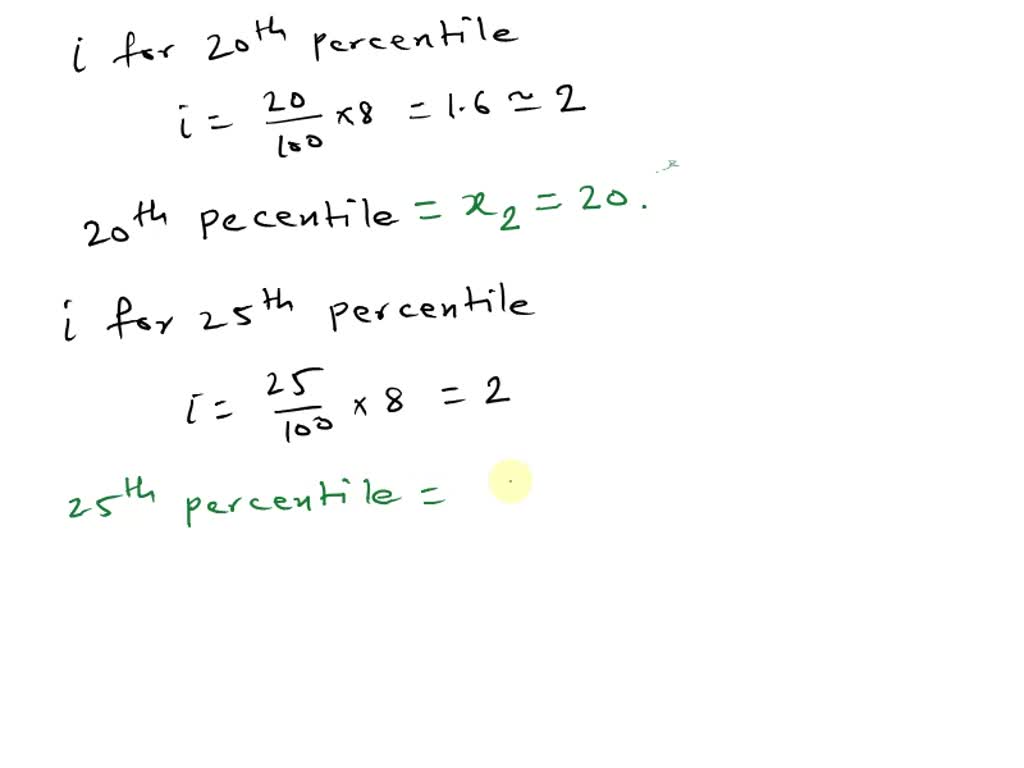 i for 20th percentile
i = 20/100 × 8 = 1.6 ≃ 2
20th pecentile = x2 = 20.
i for 25th percentile
i = 25/100 × 8 = 2
25th percentile =